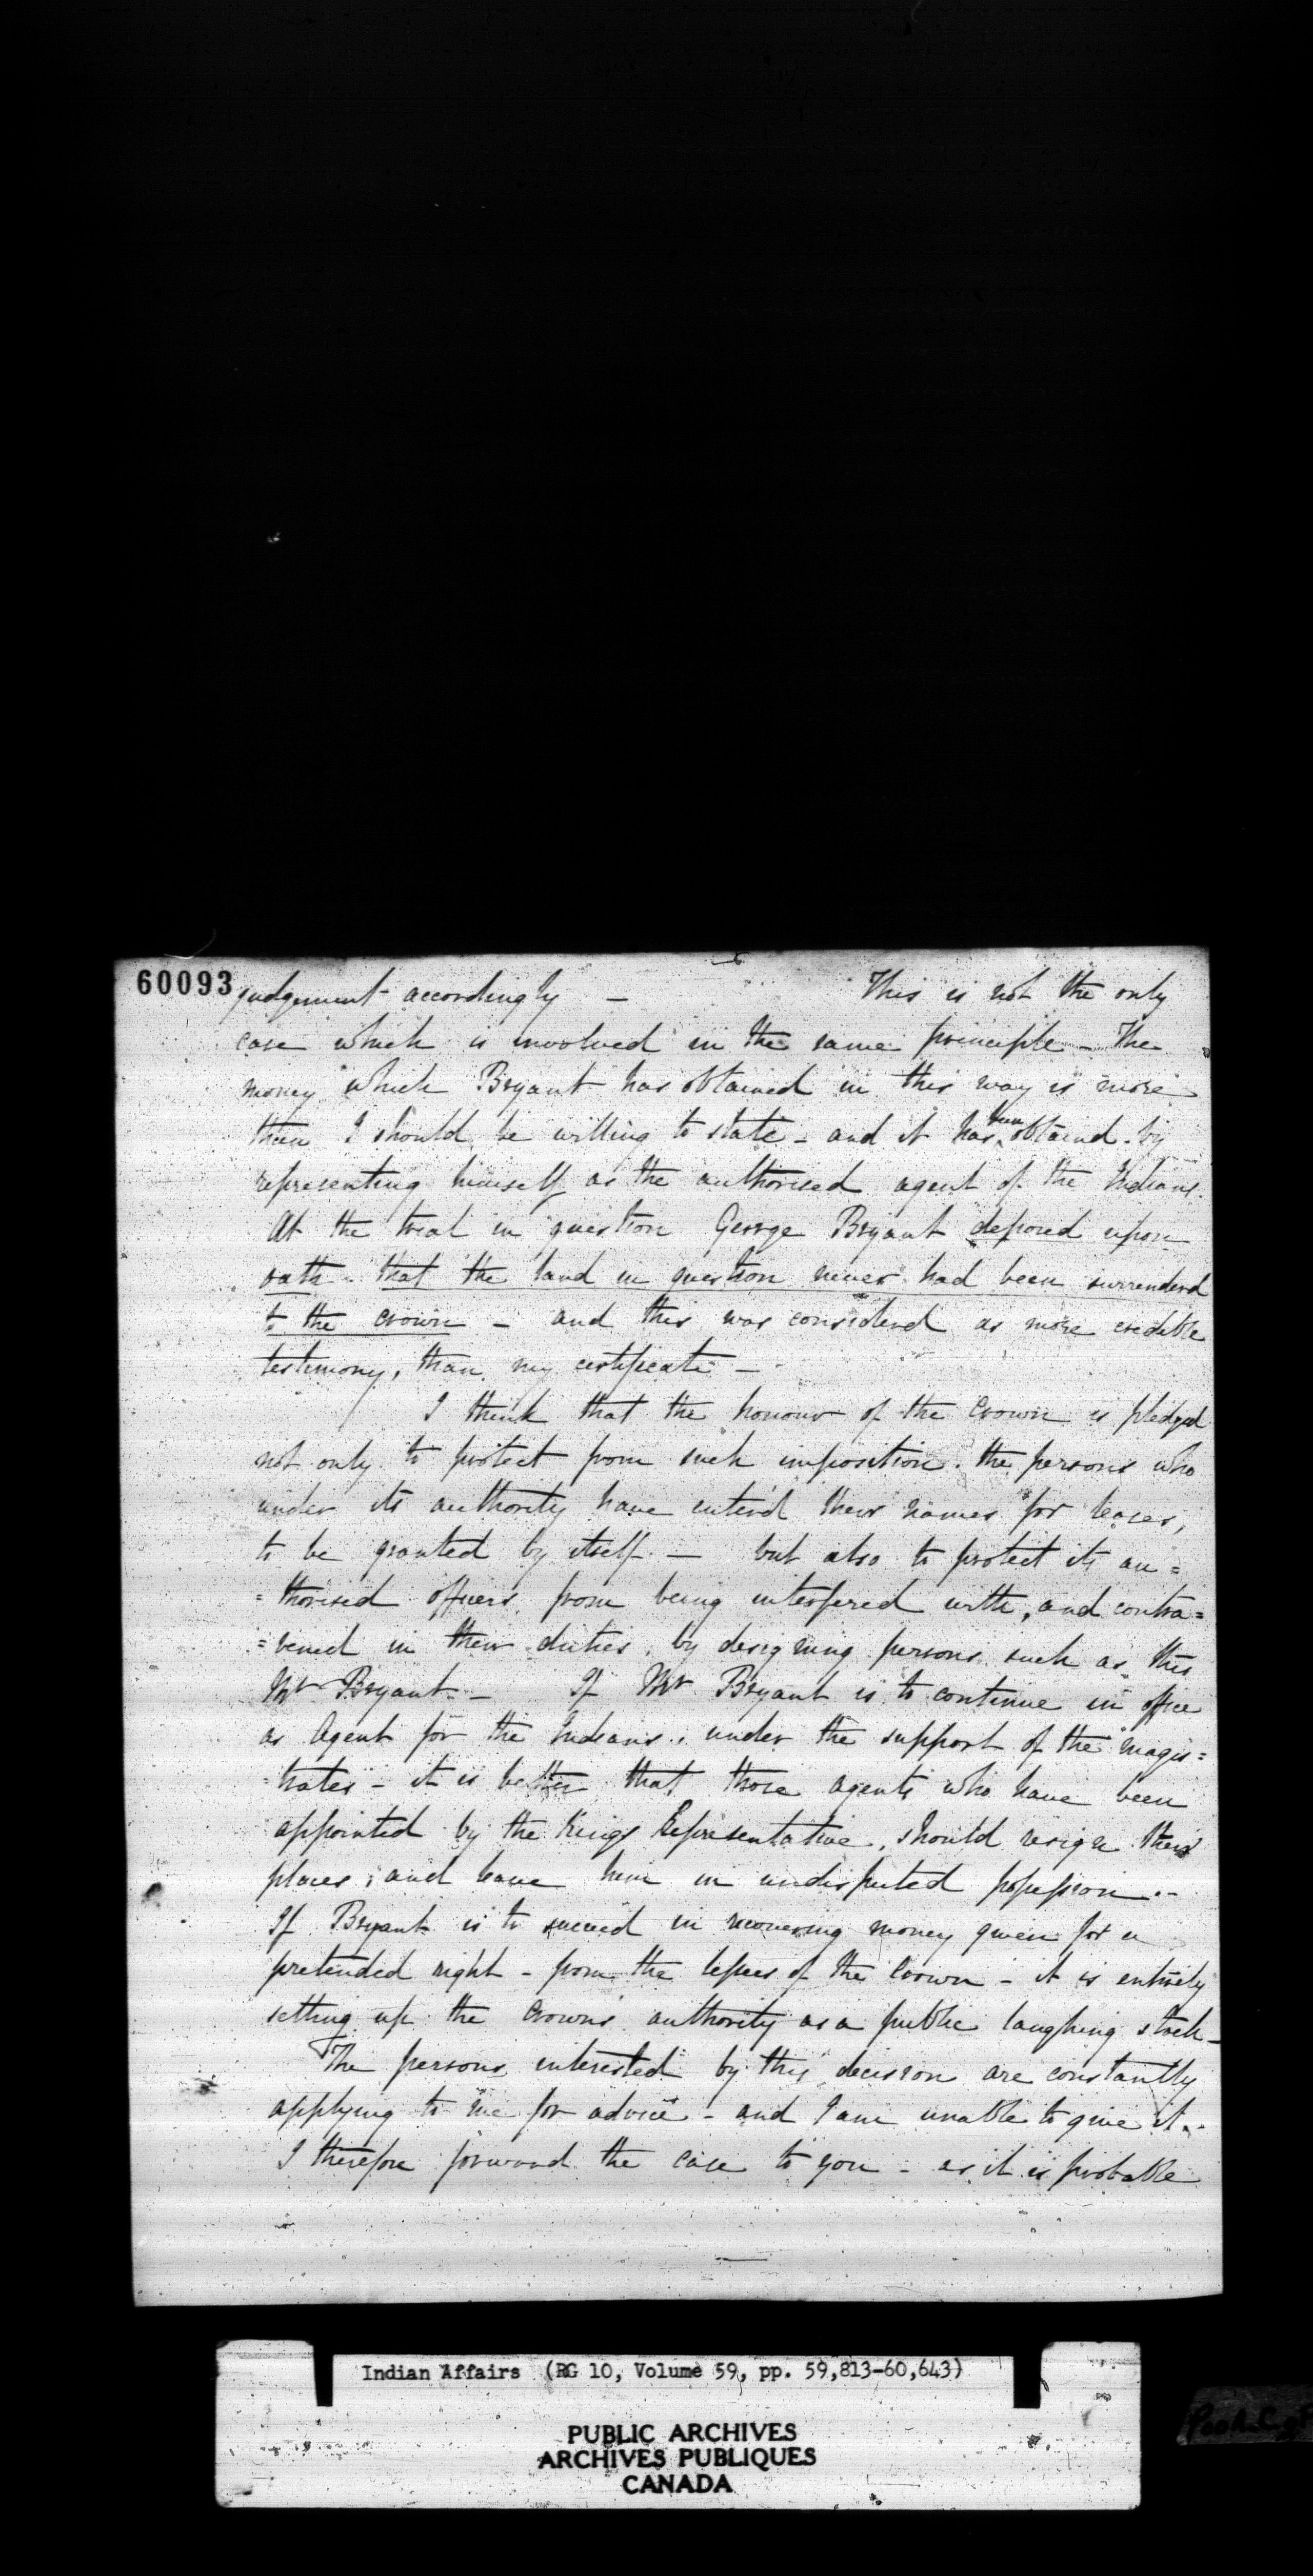 60093
judgement accordingly — This is not the only
case which is involved in the same principle – The
money which Bryant has obtained in this way is more
than I should be willing to state – and it has been obtained by
representing himself as the authorised agent of the Indians.
At the trial in question George Bryant deposed upon
oath – that the land in question never had been surrenderd
to the crown – and this was considerd as more credible
testimony, than my certificate –
I think that the honour of the Crown is pledged
not only to protect from such imposition the persons who
under its authority have enter'd their names for leases,
to be granted by itself – but also to protect its au=
=thorised officers from being interfered with, and contra=
=vened in their duties by designing persons such as this
Mr Bryant – If Mr Bryant is to continue in office
as Agent for the Indians, under the support of the magis=
=trates – it is better that those agents who have been
appointed by the Kings Representative, should resign their
places, and leave him in undisputed possession –
If Bryant is to succeed in recovering money given for a
pretended right – from the lessees of the Crown – it is entirely
setting up the Crowns authority as a public laughing stock –
The persons interested by this decision are constantly
applying to me for advice – and I am unable to give it –
I therefore forward the case to you – as it is probable
Indian Affairs (RG 10, Volume 59, pp. 59,813-60,643)
PUBLIC ARCHIVES
ARCHIVES PUBLIQUES
CANADA